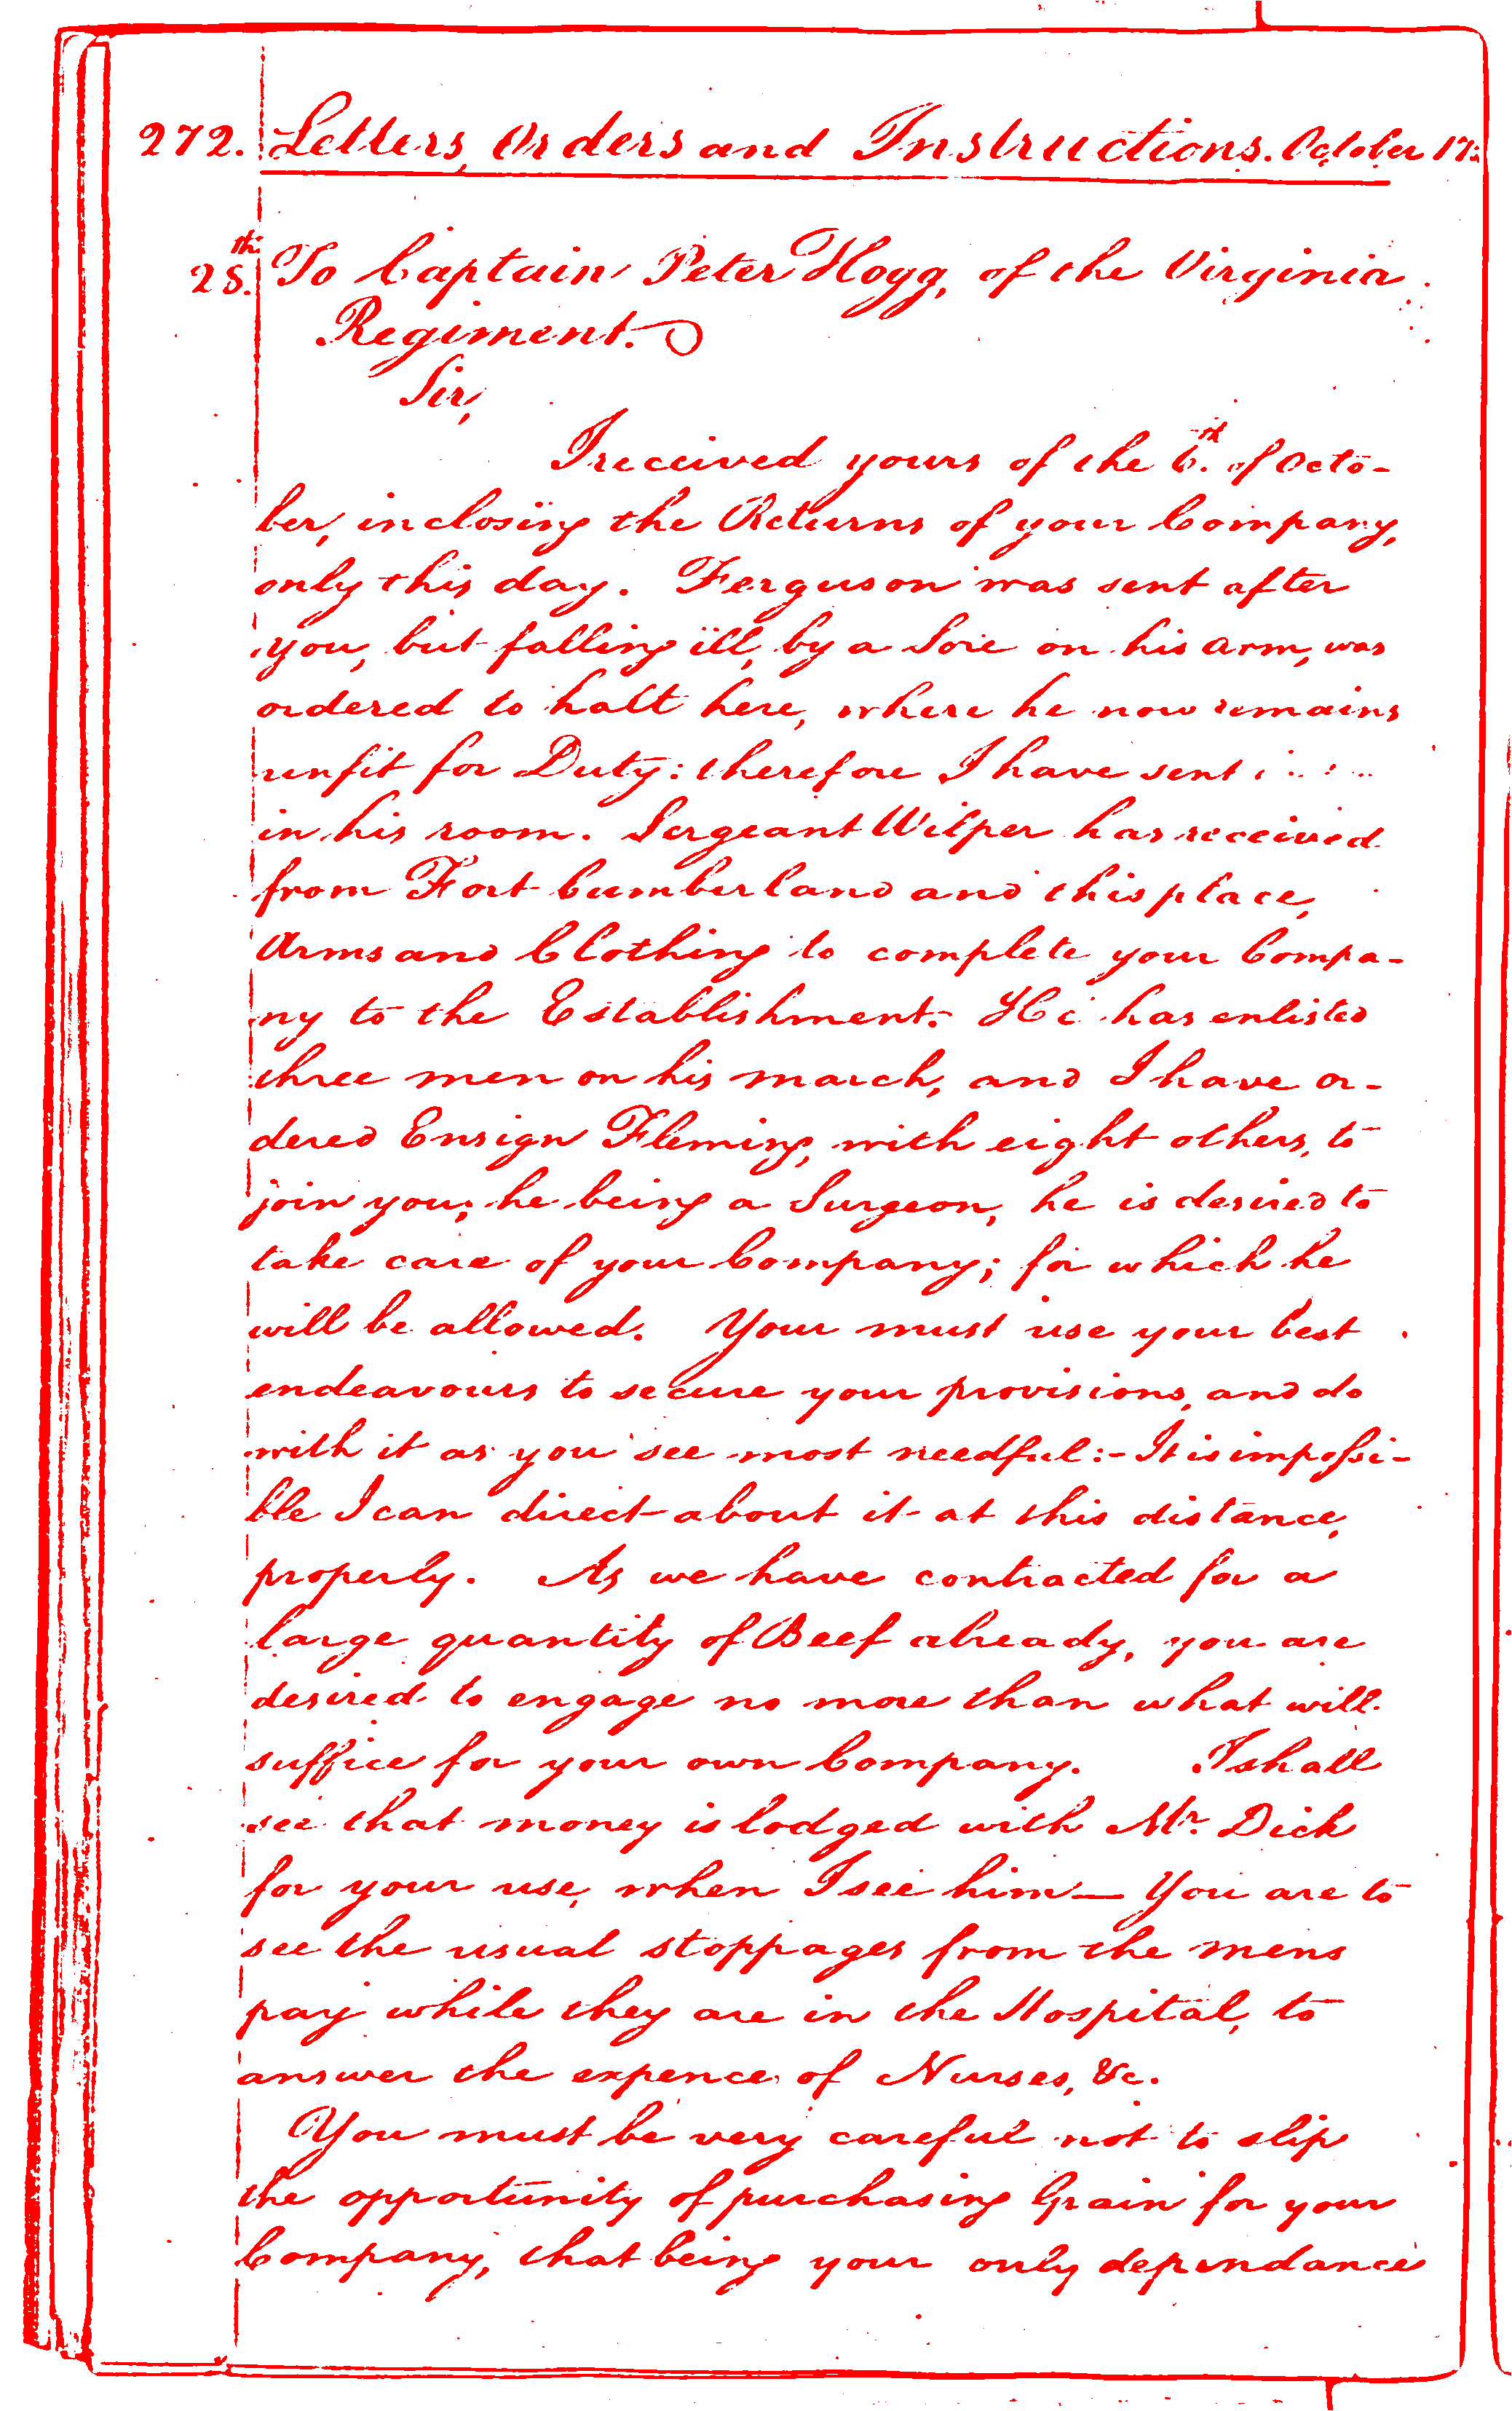 272. Letters, Orders and Instructions. October 17
28.th To Captain Peter Hogg, of the Virginia
Regiment.
Sir,
I received yours of the 6.th of Octo-
ber, inclosing the Returns of your Company,
only this day. Ferguson was sent after
you, but falling ill, by a Sore on his arm, was
ordered to halt here, where he now remains
unfit for Duty: therefore I have sent
in his room. Sergeant Wilper has received
from Fort Cumberland and this place,
Arms and Clothing to complete your Compa-
ny to the Establishment. He has enlisted
three men on his march, and I have or-
dered Ensign Fleming, with eight others, to
join you; he being a Surgeon, he is desired to
take care of your Company; for which he
will be allowed. Your must use your best
endeavours to secure your provisions, and do
with it as you see most needful:- It is impossi-
ble I can direct about it at this distance,
properly. As we have contracted for a
large quantity of Beef already, you are
desired to engage no more than what will
suffice for your own Company. I shall
see that money is lodged with Mr. Dick
for your use, when I see him — You are to
see the usual stoppages from the mens
pay while they are in the Hospital, to
answer the expence of Nurses, &c.
You must be very careful not to slip
the opportunity of purchasing Grain for your
Company, that being your only dependance